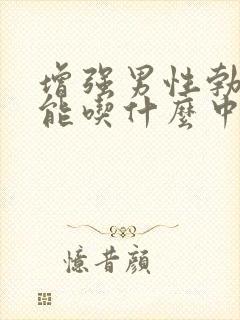 增强男性勃
能喫什麼中
憶昔顔